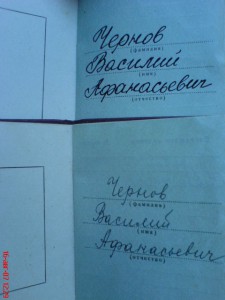 Чернов
(фамилия)
Василий
(имя)
Афанасьевич
(отчество)
Чернов
(фамилия)
Василий
(имя)
Афанасьевич
(отчество)